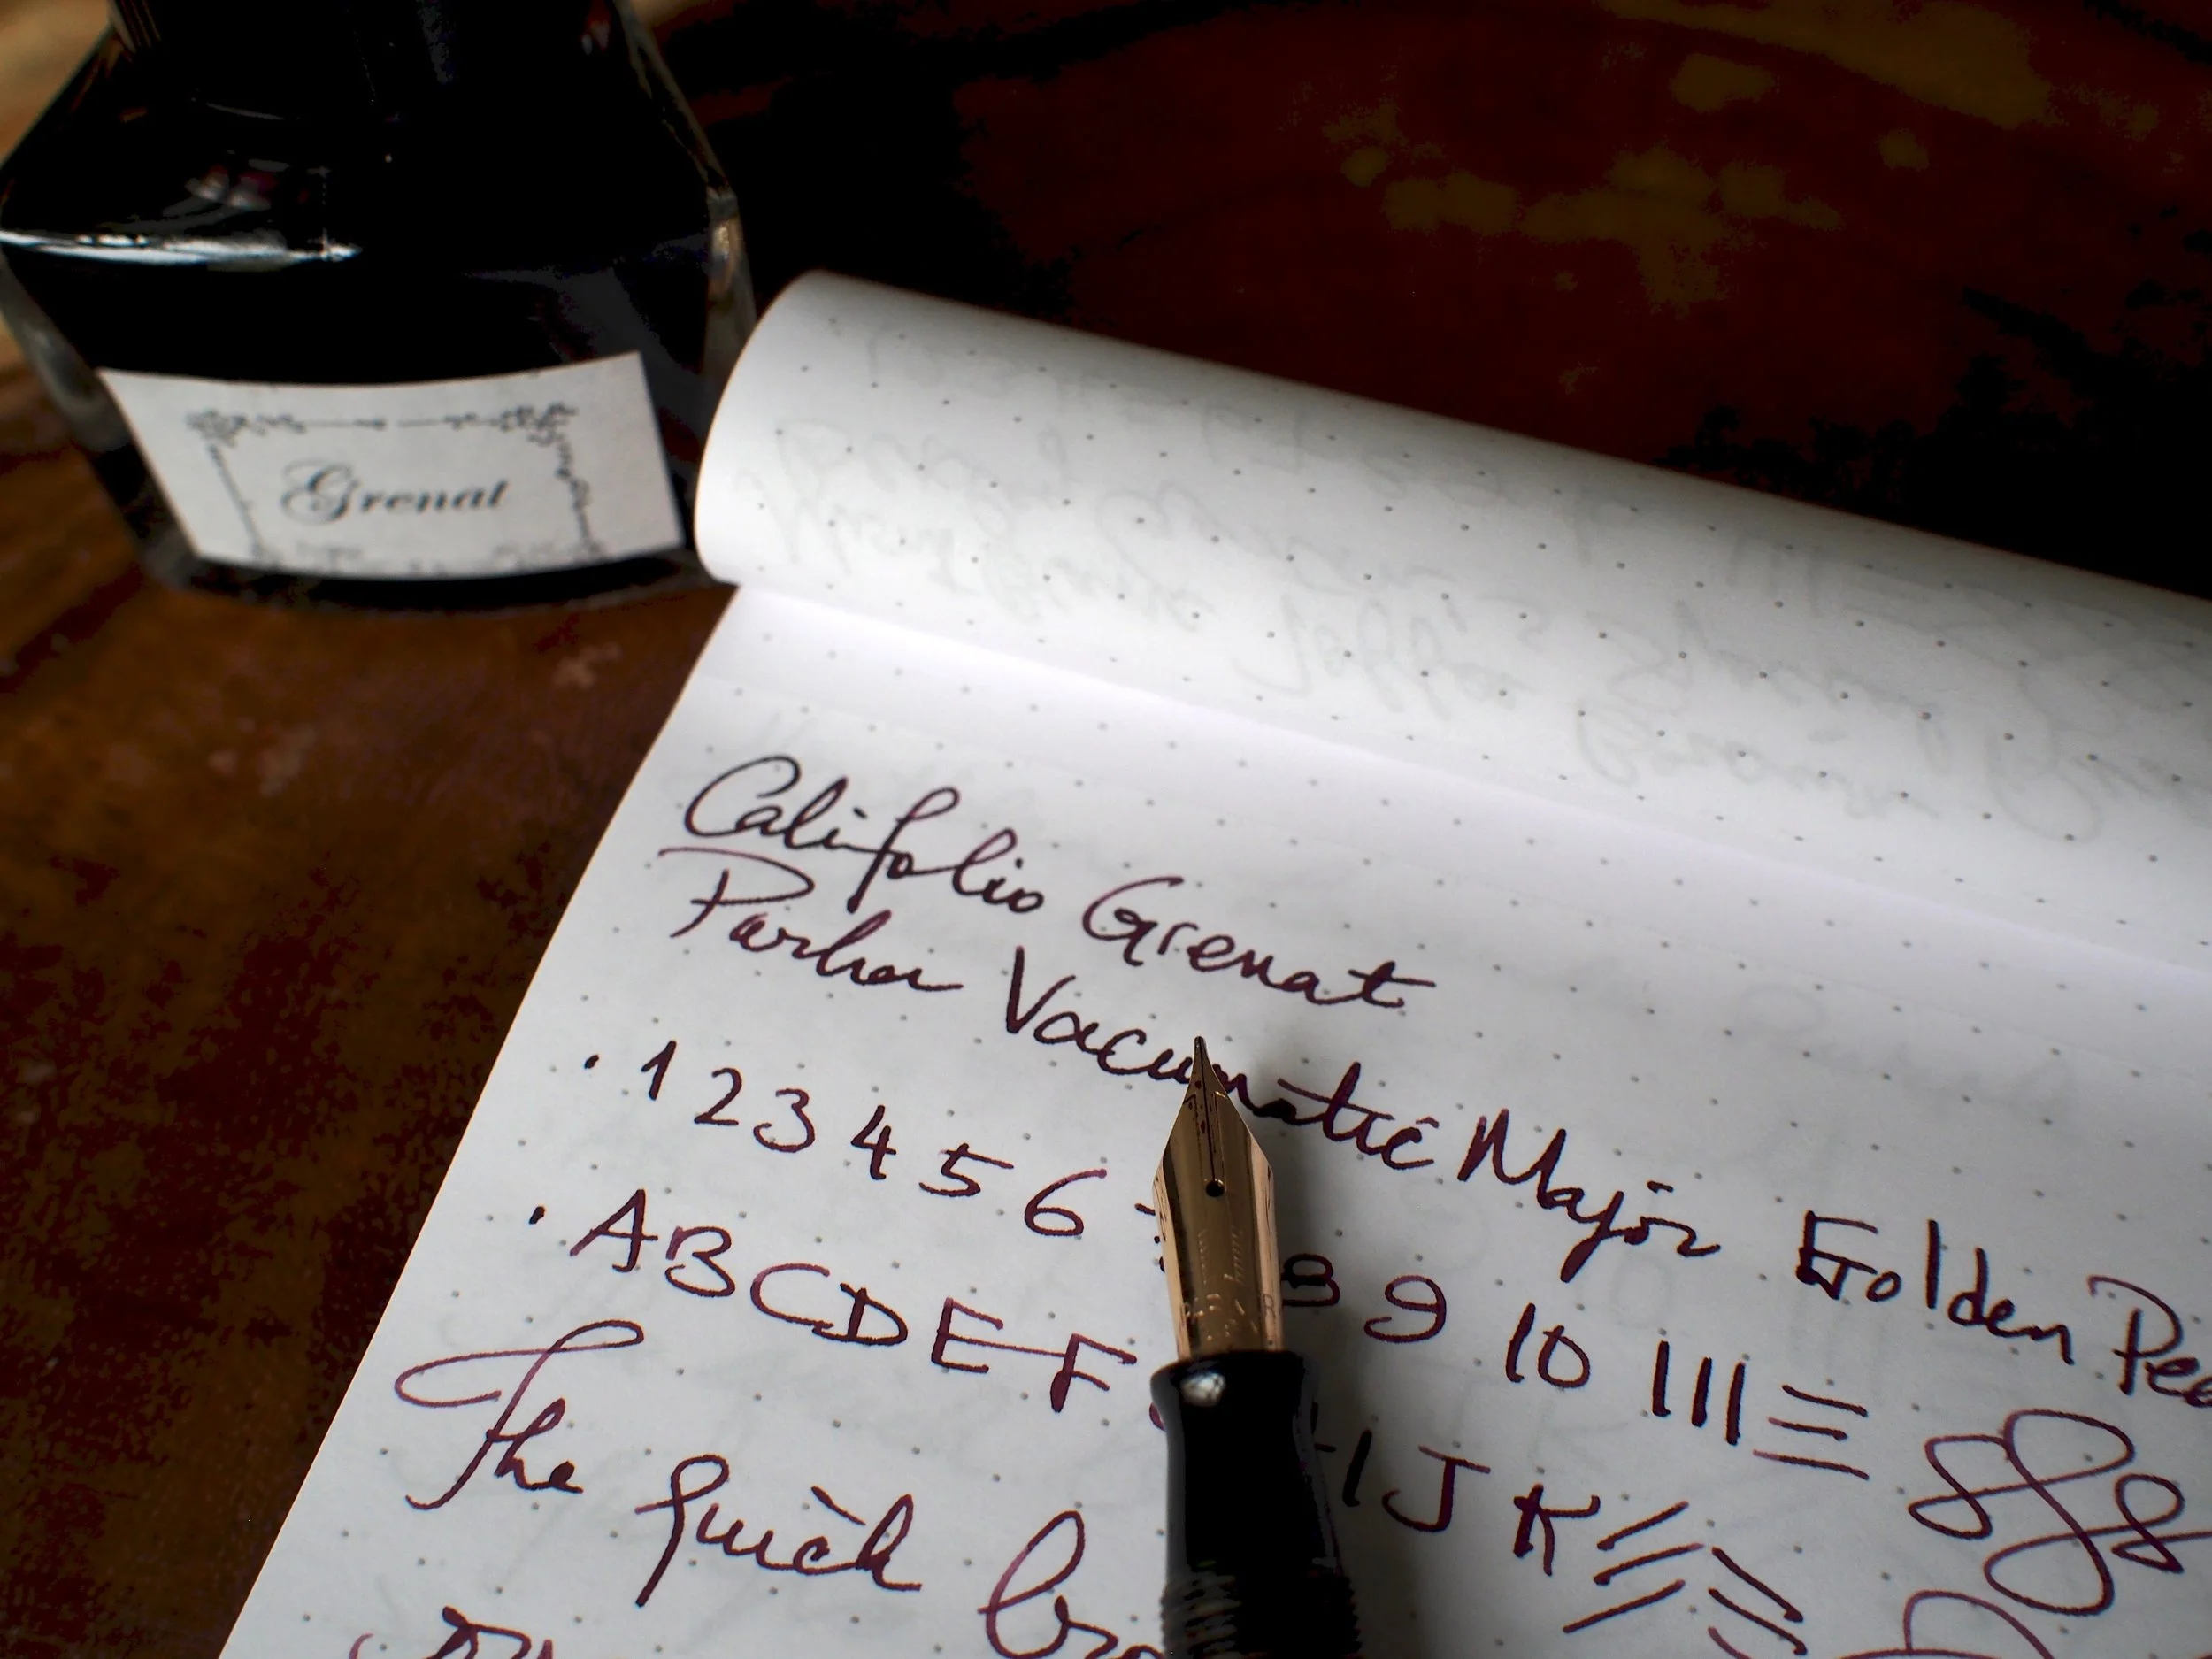 Grenat
Califolio Grenat
Parker Vacumatic Major Golden
· 1 2 3 4 5 6 8 9 10
· A B C D E F H I J K
The quick